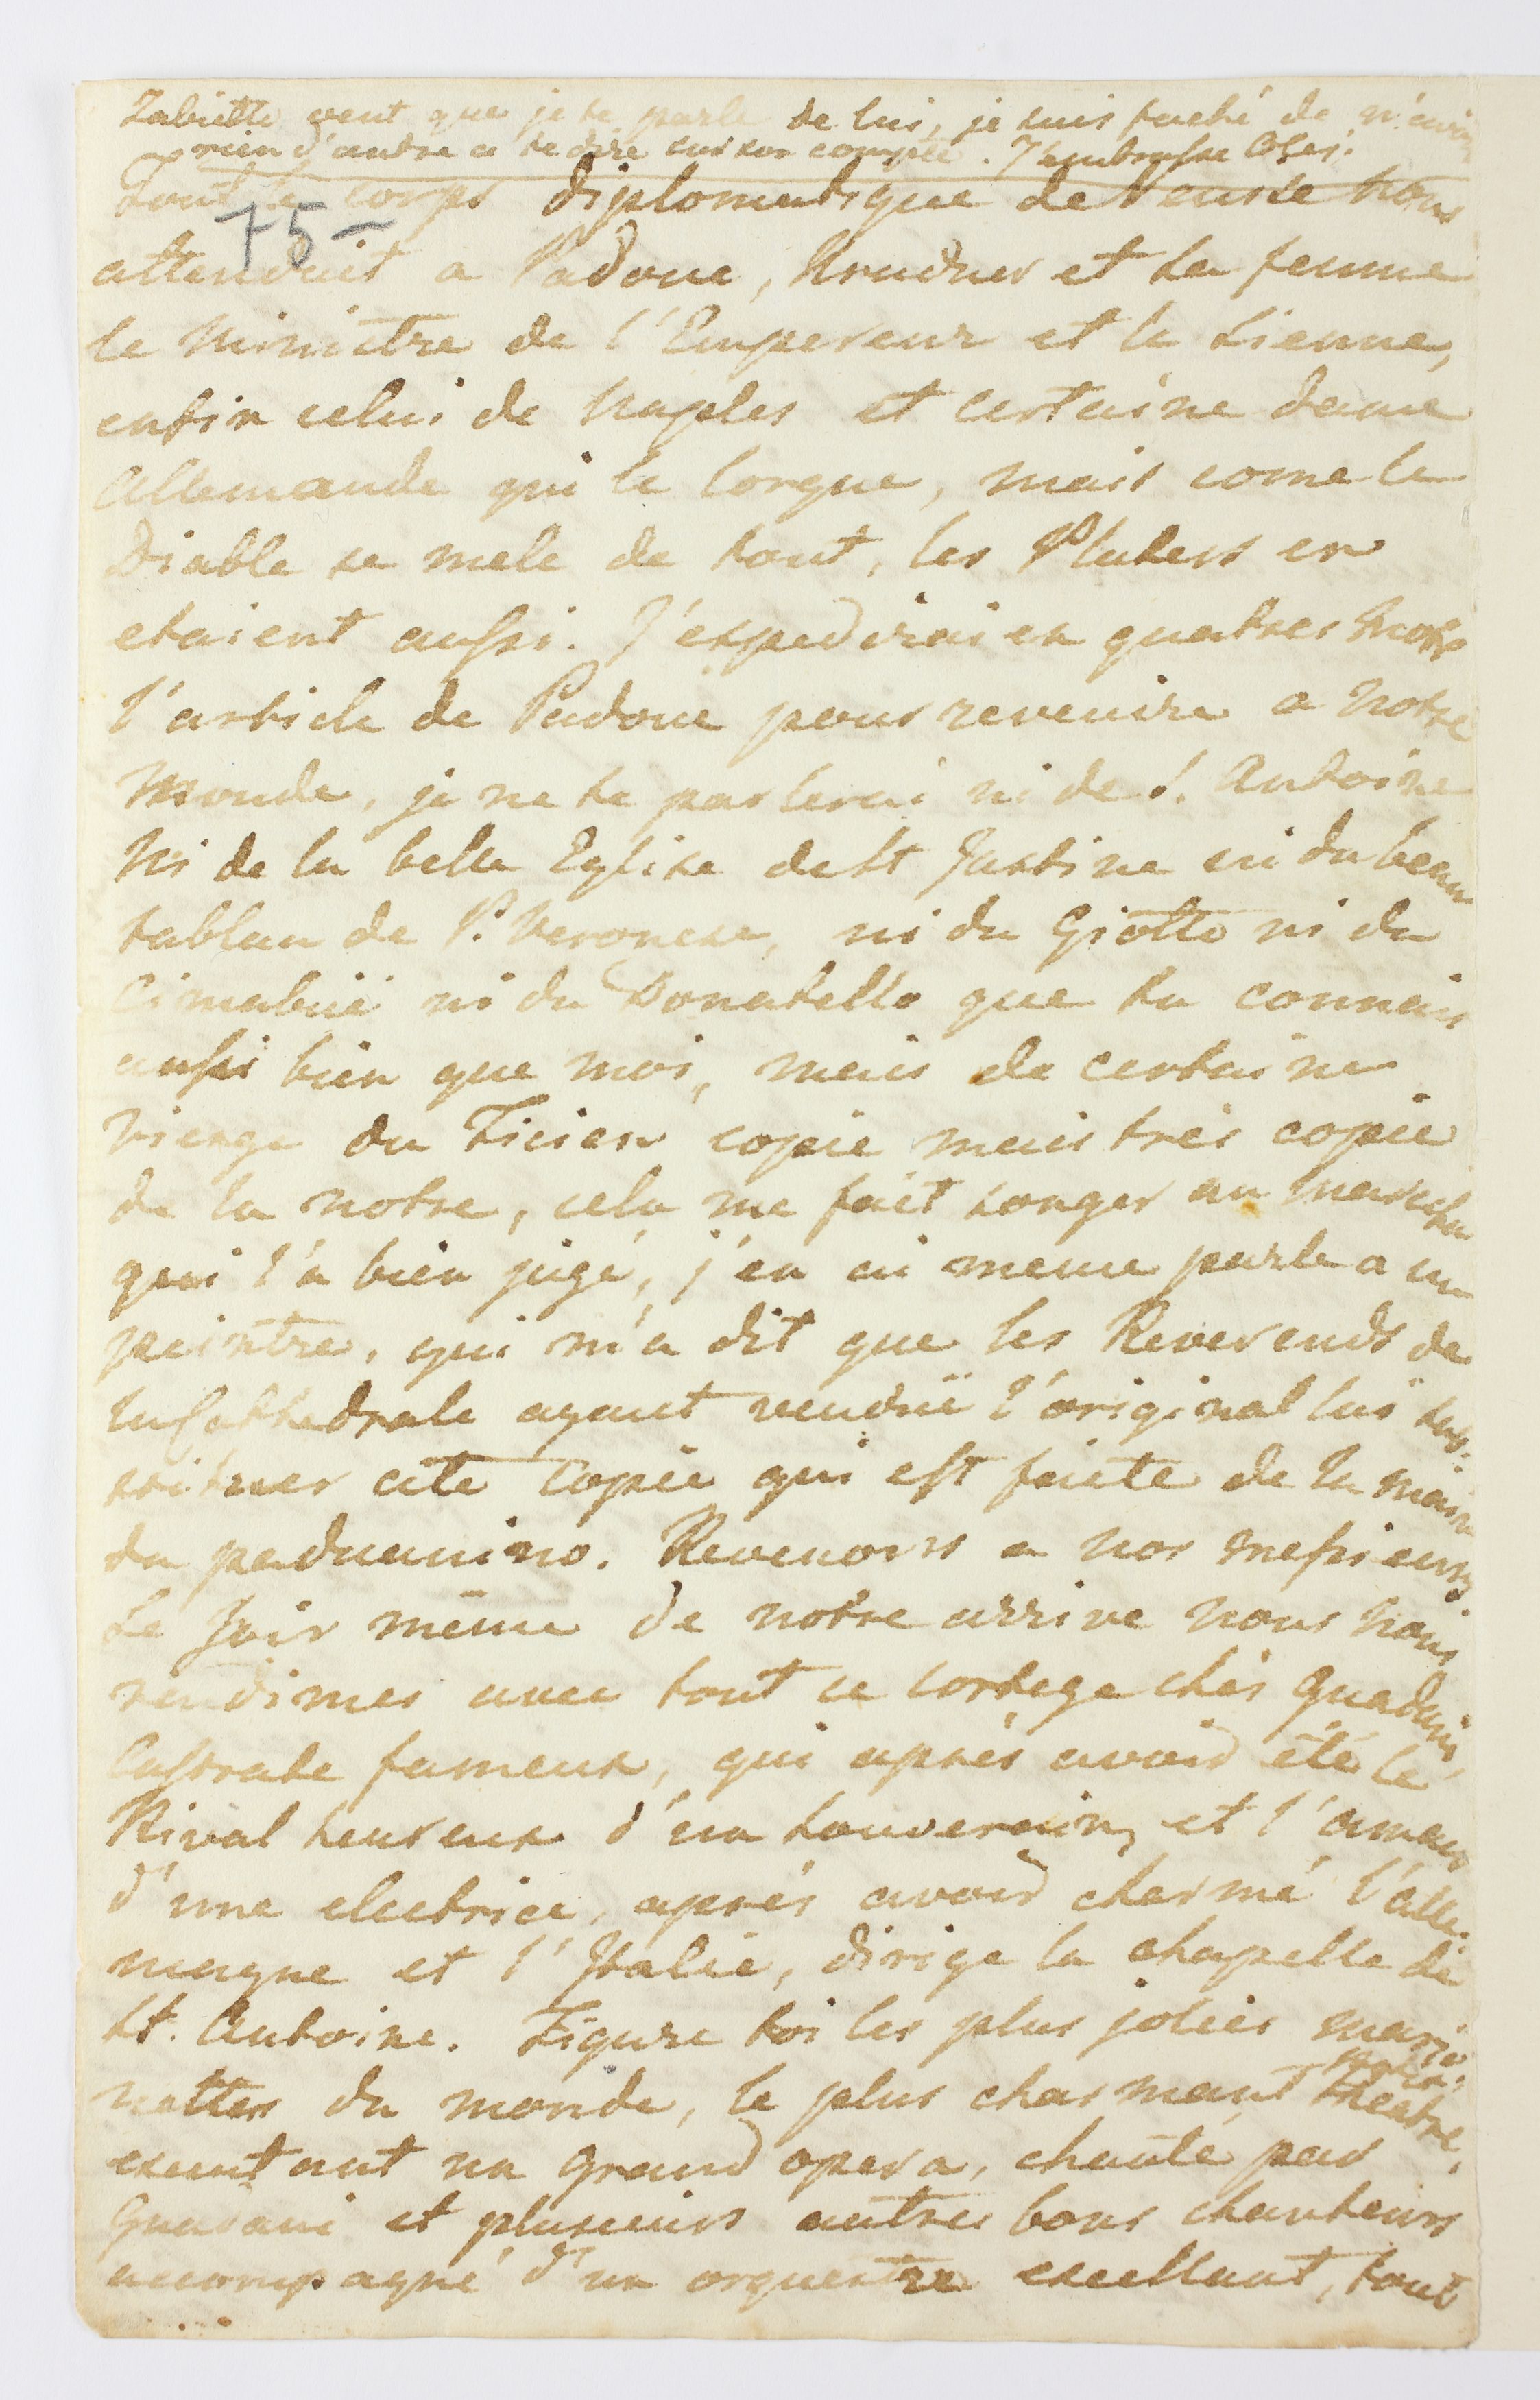 Zabiette veut que je te parle de lui, je suis faché de n'avoir
rien d'autre a te dire sur son compte. J'embrasse
Tout le corps diplomatique de Venise nous
75-
attendait a Padoue, Krudner et sa femme
le Ministre de l'Empereur et la sienne,
enfin celui de Naples et certaine dame
Allemande qui le lorgne, mais come le
Diable se mele de tout, les Pluters en
etaient aussi. J'expedirai en quatres mots
l'article de Padoue pour revenire a notre
monde, je ne te parlerai ni de S. Antoine
Ni de la belle Eglise de St Justine ni du beau
tablau de P. Veronese, ni du Giotto ni du
Cimabüé ni du Donatello que tu connais
aussi bien que moi, mais de certaine
vierge du Ticien copie mais trés copie
de la notre, cela me fait songer au
qui l'a bien jugé, j'en ai meme parle a un
peintre, qui m'a dit que les Reverends de
la Cathedrale ayant vendüe l'original lui sus-
tituer cete copie qui est faite de la main
du paduanino. Revenons a nos messieurs
Le soir même de notre arrive nous nous
rendimes avec tout ce cortege chés Guadani,
Castrate fameux, qui aprés avoir été le
Rival heureux d'un souverain, et l'amant
d'une electrice, aprés avoir charmé l'alle-
magne et l'Italie, dirige la chapelle de
St. Antoine. Figure toi les plus jolies mario-
nettes du monde, le plus charmant theatre,
executant un grand opera, chanté par
Guadani et plusieurs autres bons chanteurs
accompagné d'un orquestre excellant, tout